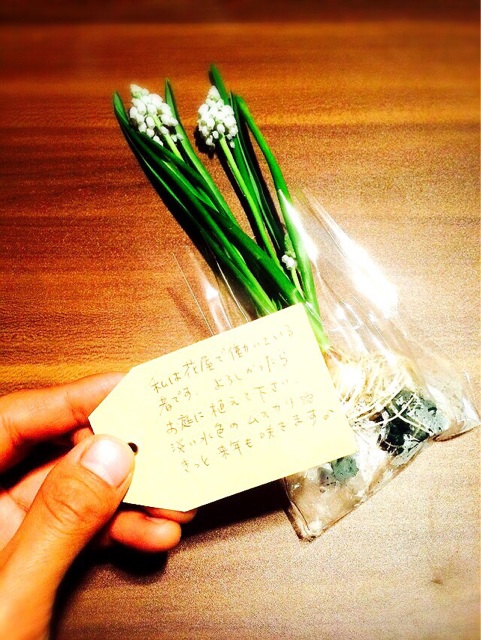 私は花屋で働いている
者です。よろしかったら
お庭に植えて下さい。
淡い水色のムスカリ
きっと来年も咲きますの